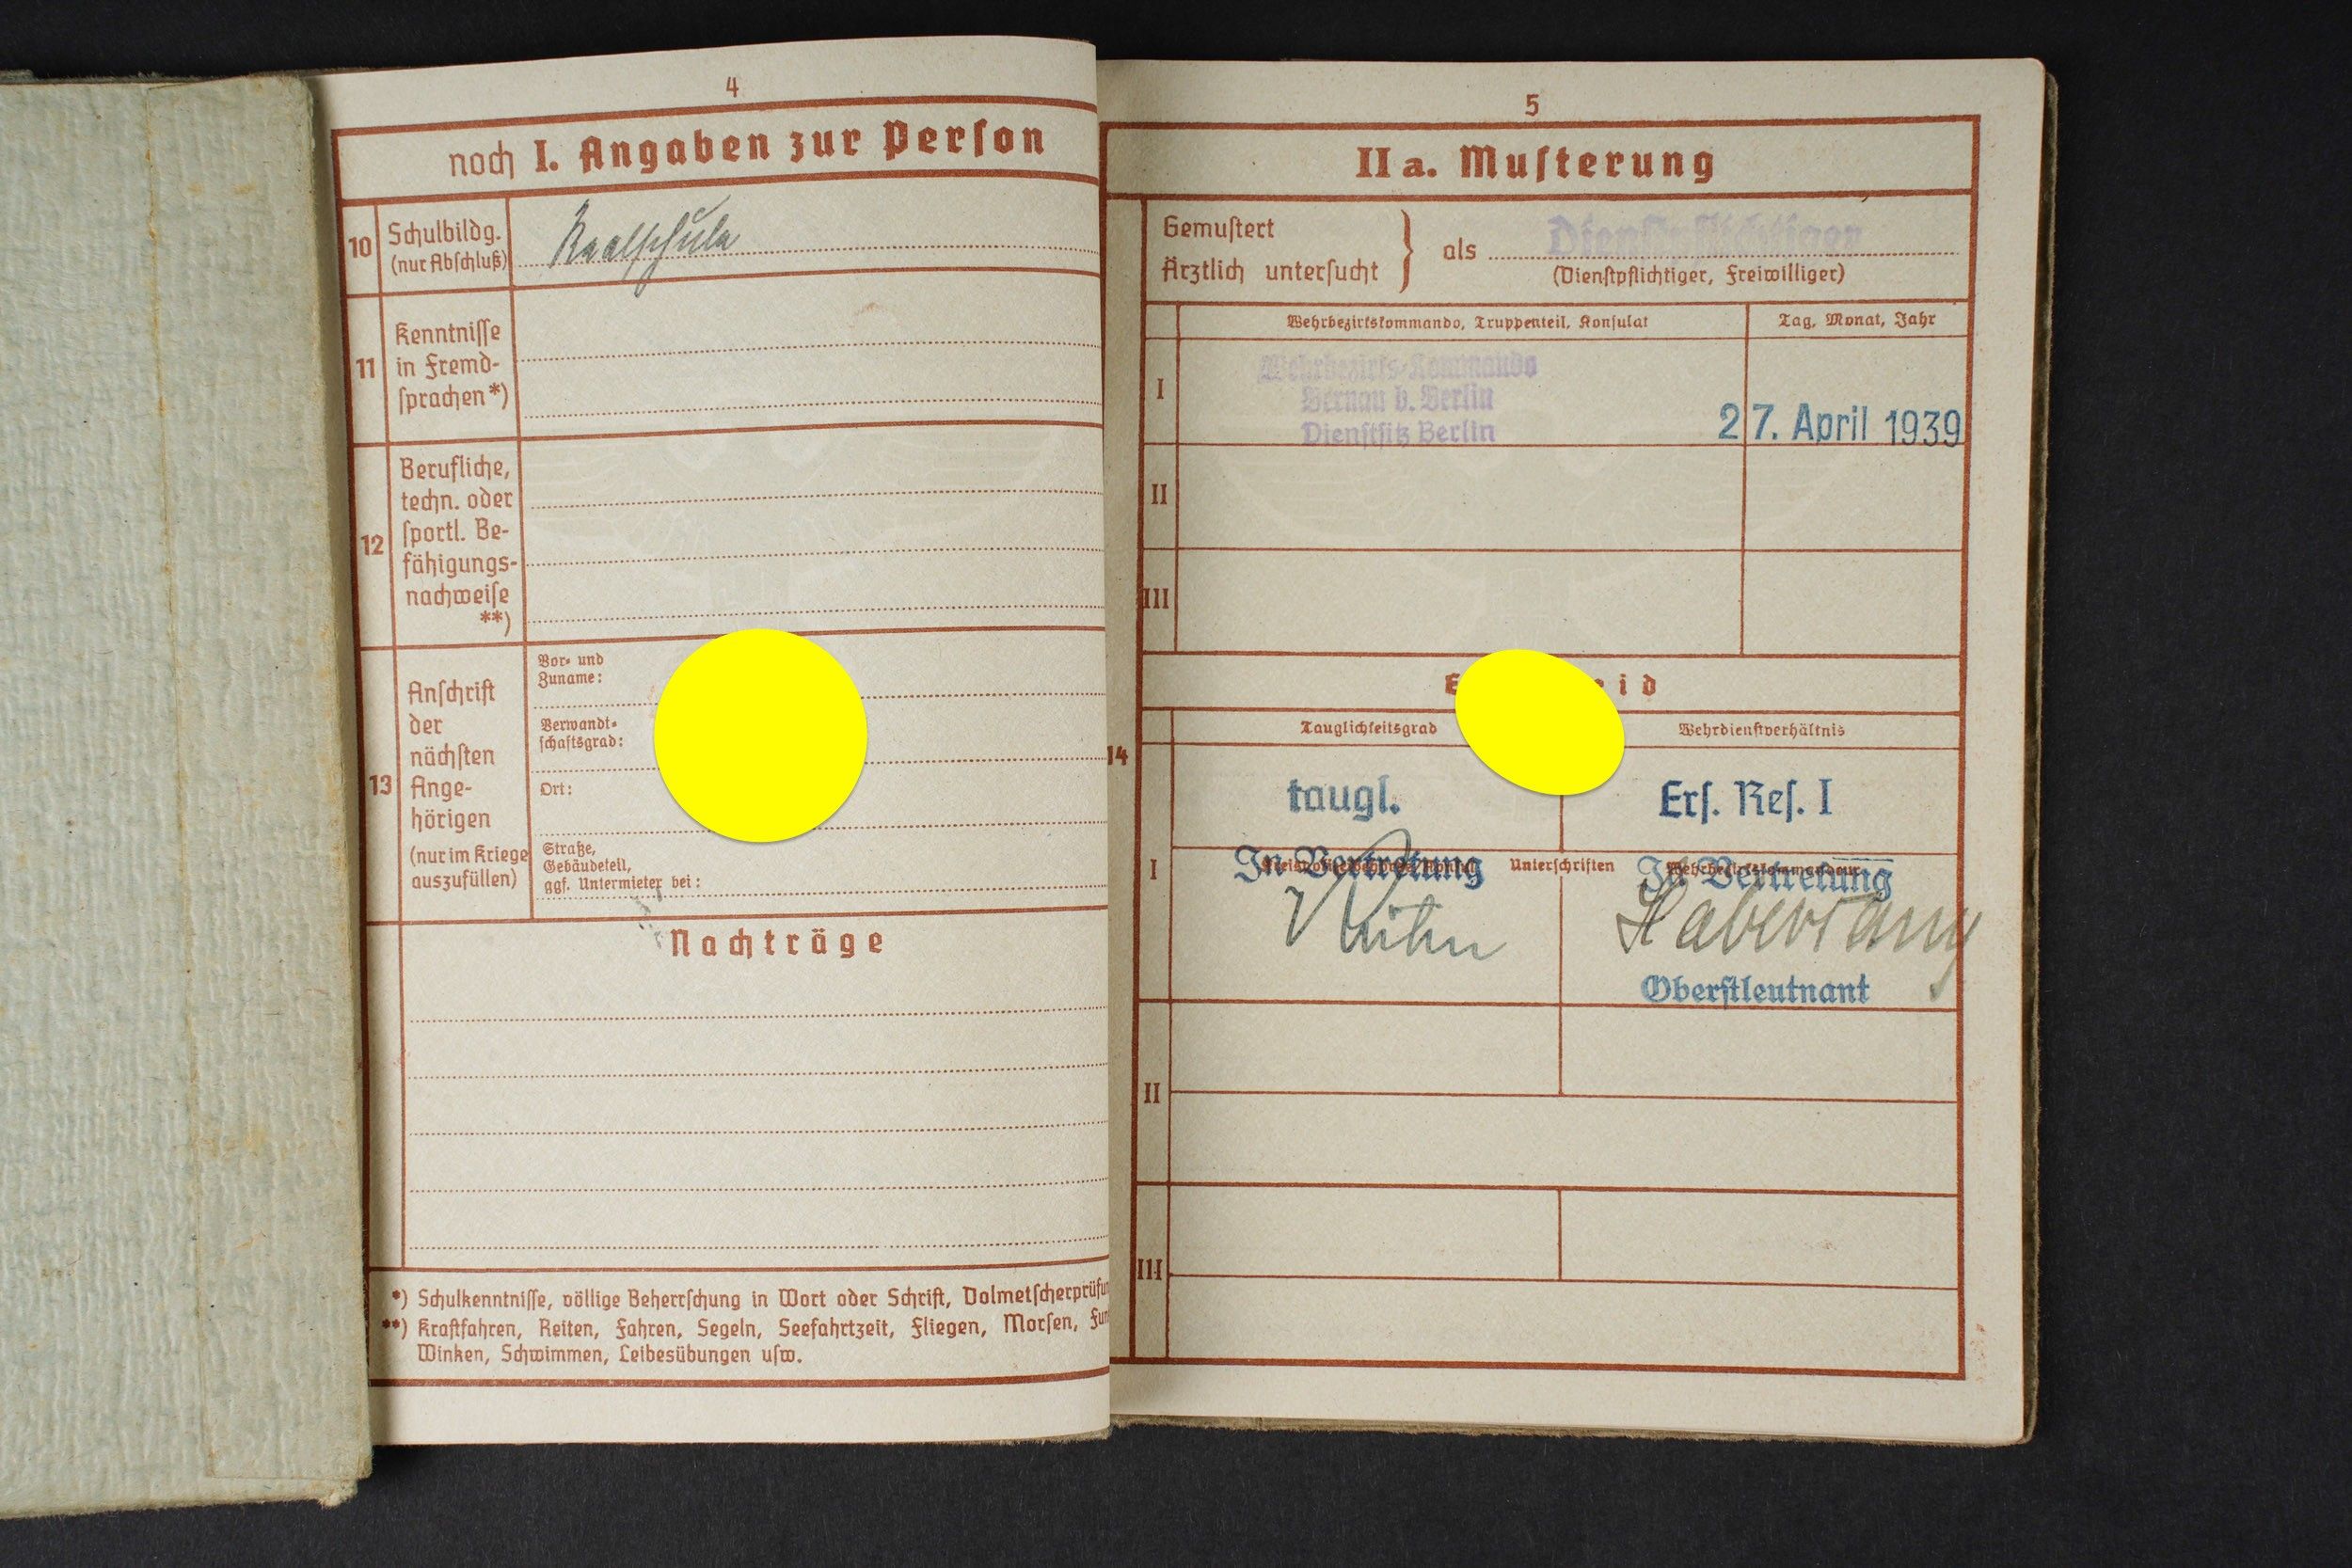 4
noch I. Angaben zur Perſon
10
Schulbildg.
(nur Abſchluß)
Realſchule
11
Kenntniſſe
in Fremd-
ſprachen *)
12
Berufliche,
techn. oder
ſportl. Be-
fähigungs-
nachweiſe
**)
13
Anſchrift
der
nächſten
Ange-
hörigen
(nur im Kriege
auszufüllen)
Vor- und
Zuname:
Verwandt-
ſchaftsgrad:
Ort:
Straße,
Gebäudeteil,
ggf. Untermieter bei:
Nachträge
*) Schulkenntniſſe, völlige Beherrſchung in Wort oder Schrift, Dolmetſcherprüfu
**) Kraftfahren, Reiten, Fahren, Segeln, Seefahrtzeit, Fliegen, Morſen, Fun
Winken, Schwimmen, Leibesübungen uſw.
5
IIa. Muſterung
Gemuſtert
Ärztlich unterſucht
als
Dienſtpflichtiger
(Dienſtpflichtiger, Freiwilliger)
Wehrbezirkskommando, Truppenteil, Konſulat
Tag, Monat, Jahr
I
Wehrbezirks-Kommando
Bernau b. Berlin
Dienſtſitz Berlin
27. April 1939
II
III
E eid
Tauglichkeitsgrad
Wehrdienſtverhältnis
14
taugl.
Erſ. Reſ. I
I
In Vertretung
Unterſchriften
In Vertretung
Oberſtleutnant
II
III